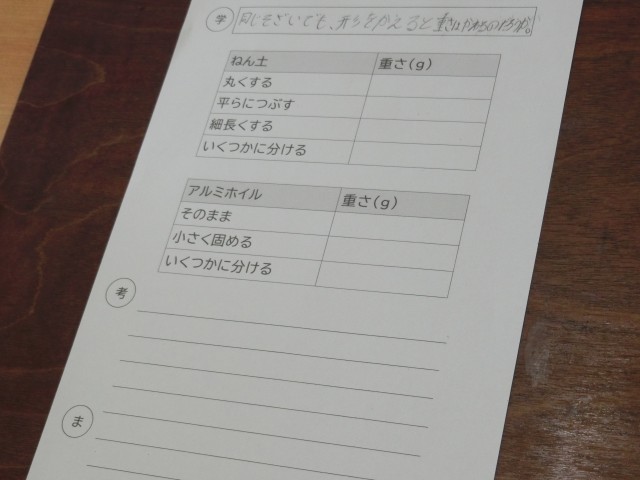 学 同じそざいでも、形をかえると重さはかわるのだろうか。
ねん土 重さ(g)
丸くする
平らにつぶす
細長くする
いくつかに分ける
アルミホイル 重さ(g)
そのまま
小さく固める
いくつかに分ける
考
ま